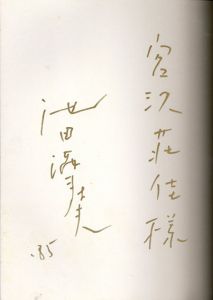 宮沢荘佳様
池田満寿夫
'85